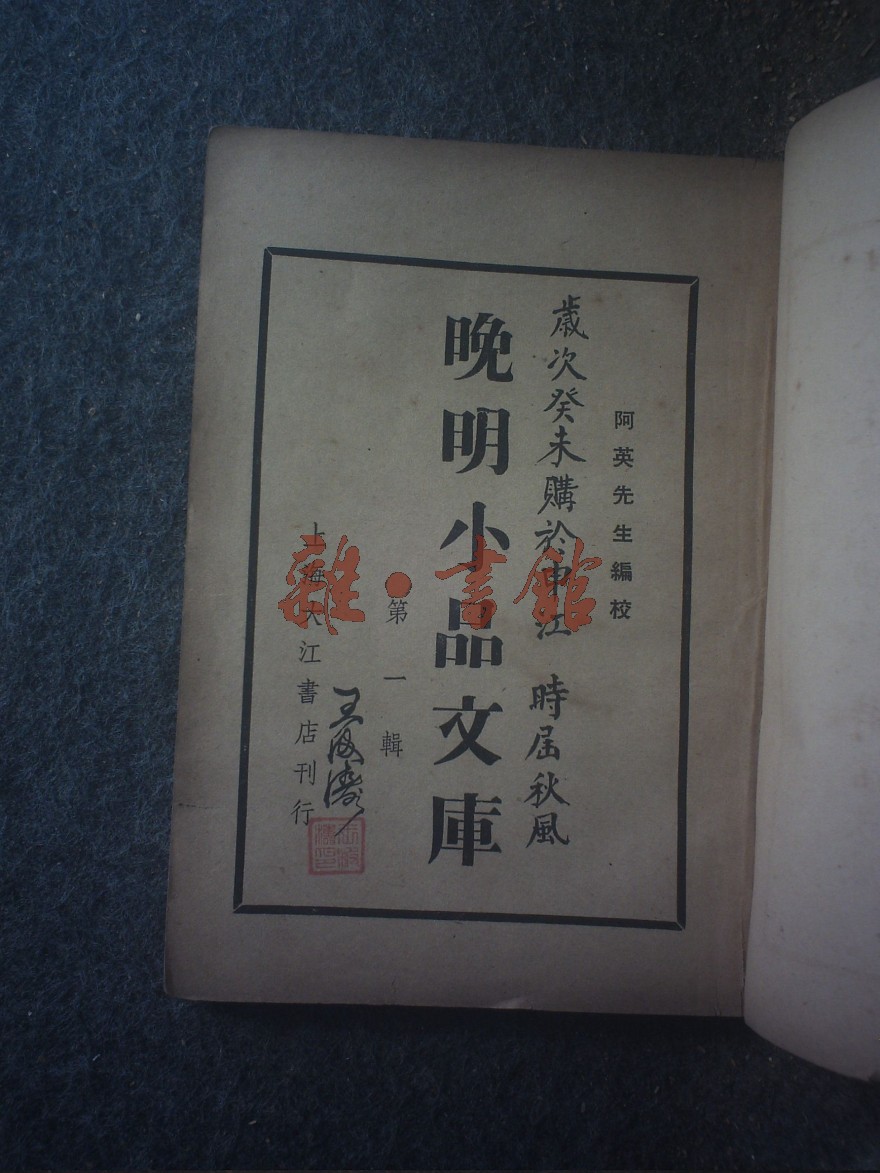 阿英先生編校
歲次癸未購於申江 時届秋風
晚明小品文庫
第一輯
上海大江書店刊行
雜·書館